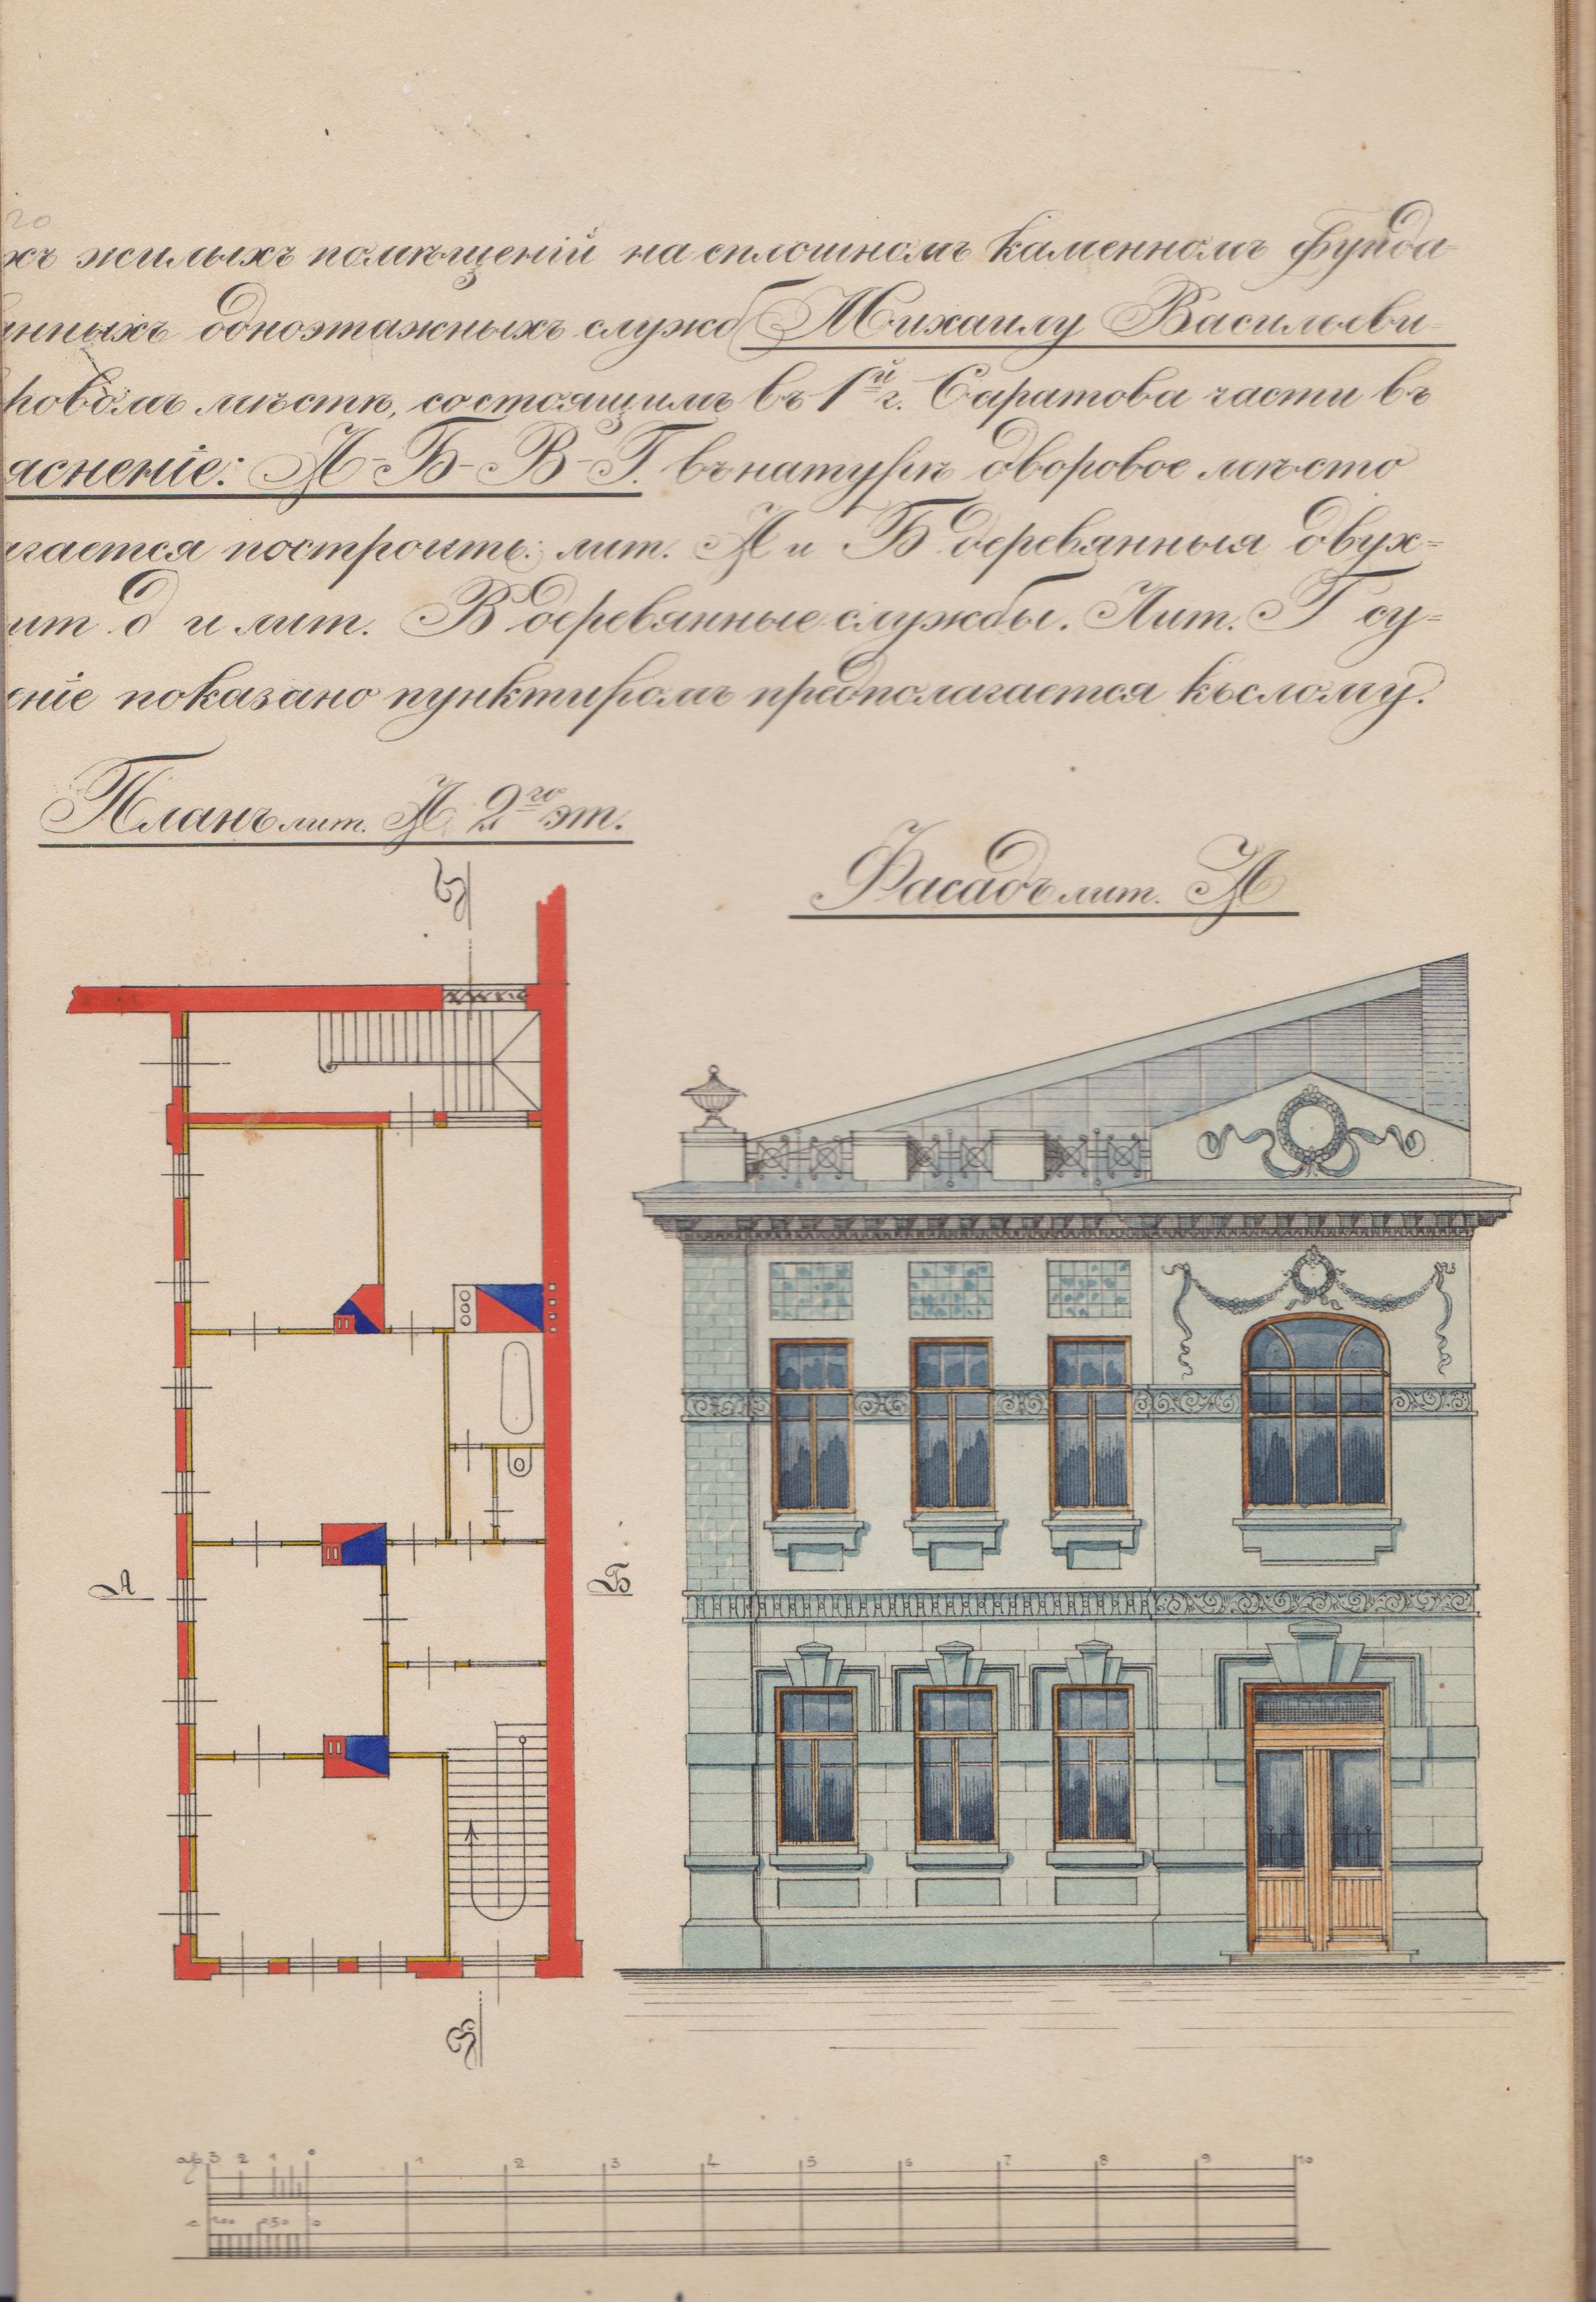 хъ жилыхъ помѣщеній на сплошномъ каменномъ фунда-
нныхъ одноэтажныхъ службъ Михаилу Васильеви-
ровомъ мѣстѣ, состоящимъ въ 1й г. Саратова части въ
ясненіе: А-Б-В-Г. въ натурѣ дворовое мѣсто
агается построить: лит. А и Б деревянныя двух-
ит д и лит. В деревянные службы. Лит. Г су-
еніе показано пунктиромъ предполагается къ слому.
Планъ лит. А 2го эт.
Фасадъ лит. А
А
Б
3 2 1 0 1 2 3 4 5 6 7 8 9 10
0